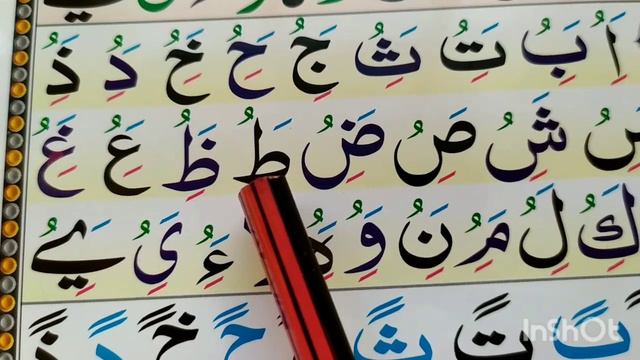 اَُِ بَُِ تَُِ ثَُِ جَُِ حَُِ خَُِ دَُِ ذَُِ
سَُِ شَُِ صَُِ ضَُِ طَُِ ظَُِ عَُِ غَُِ
كَُِ لَُِ مَُِ نَُِ وَُِ هَُِ ءَُِ يَُِ ےَُِ
تً ثً حً خً دً ذً
InShOt